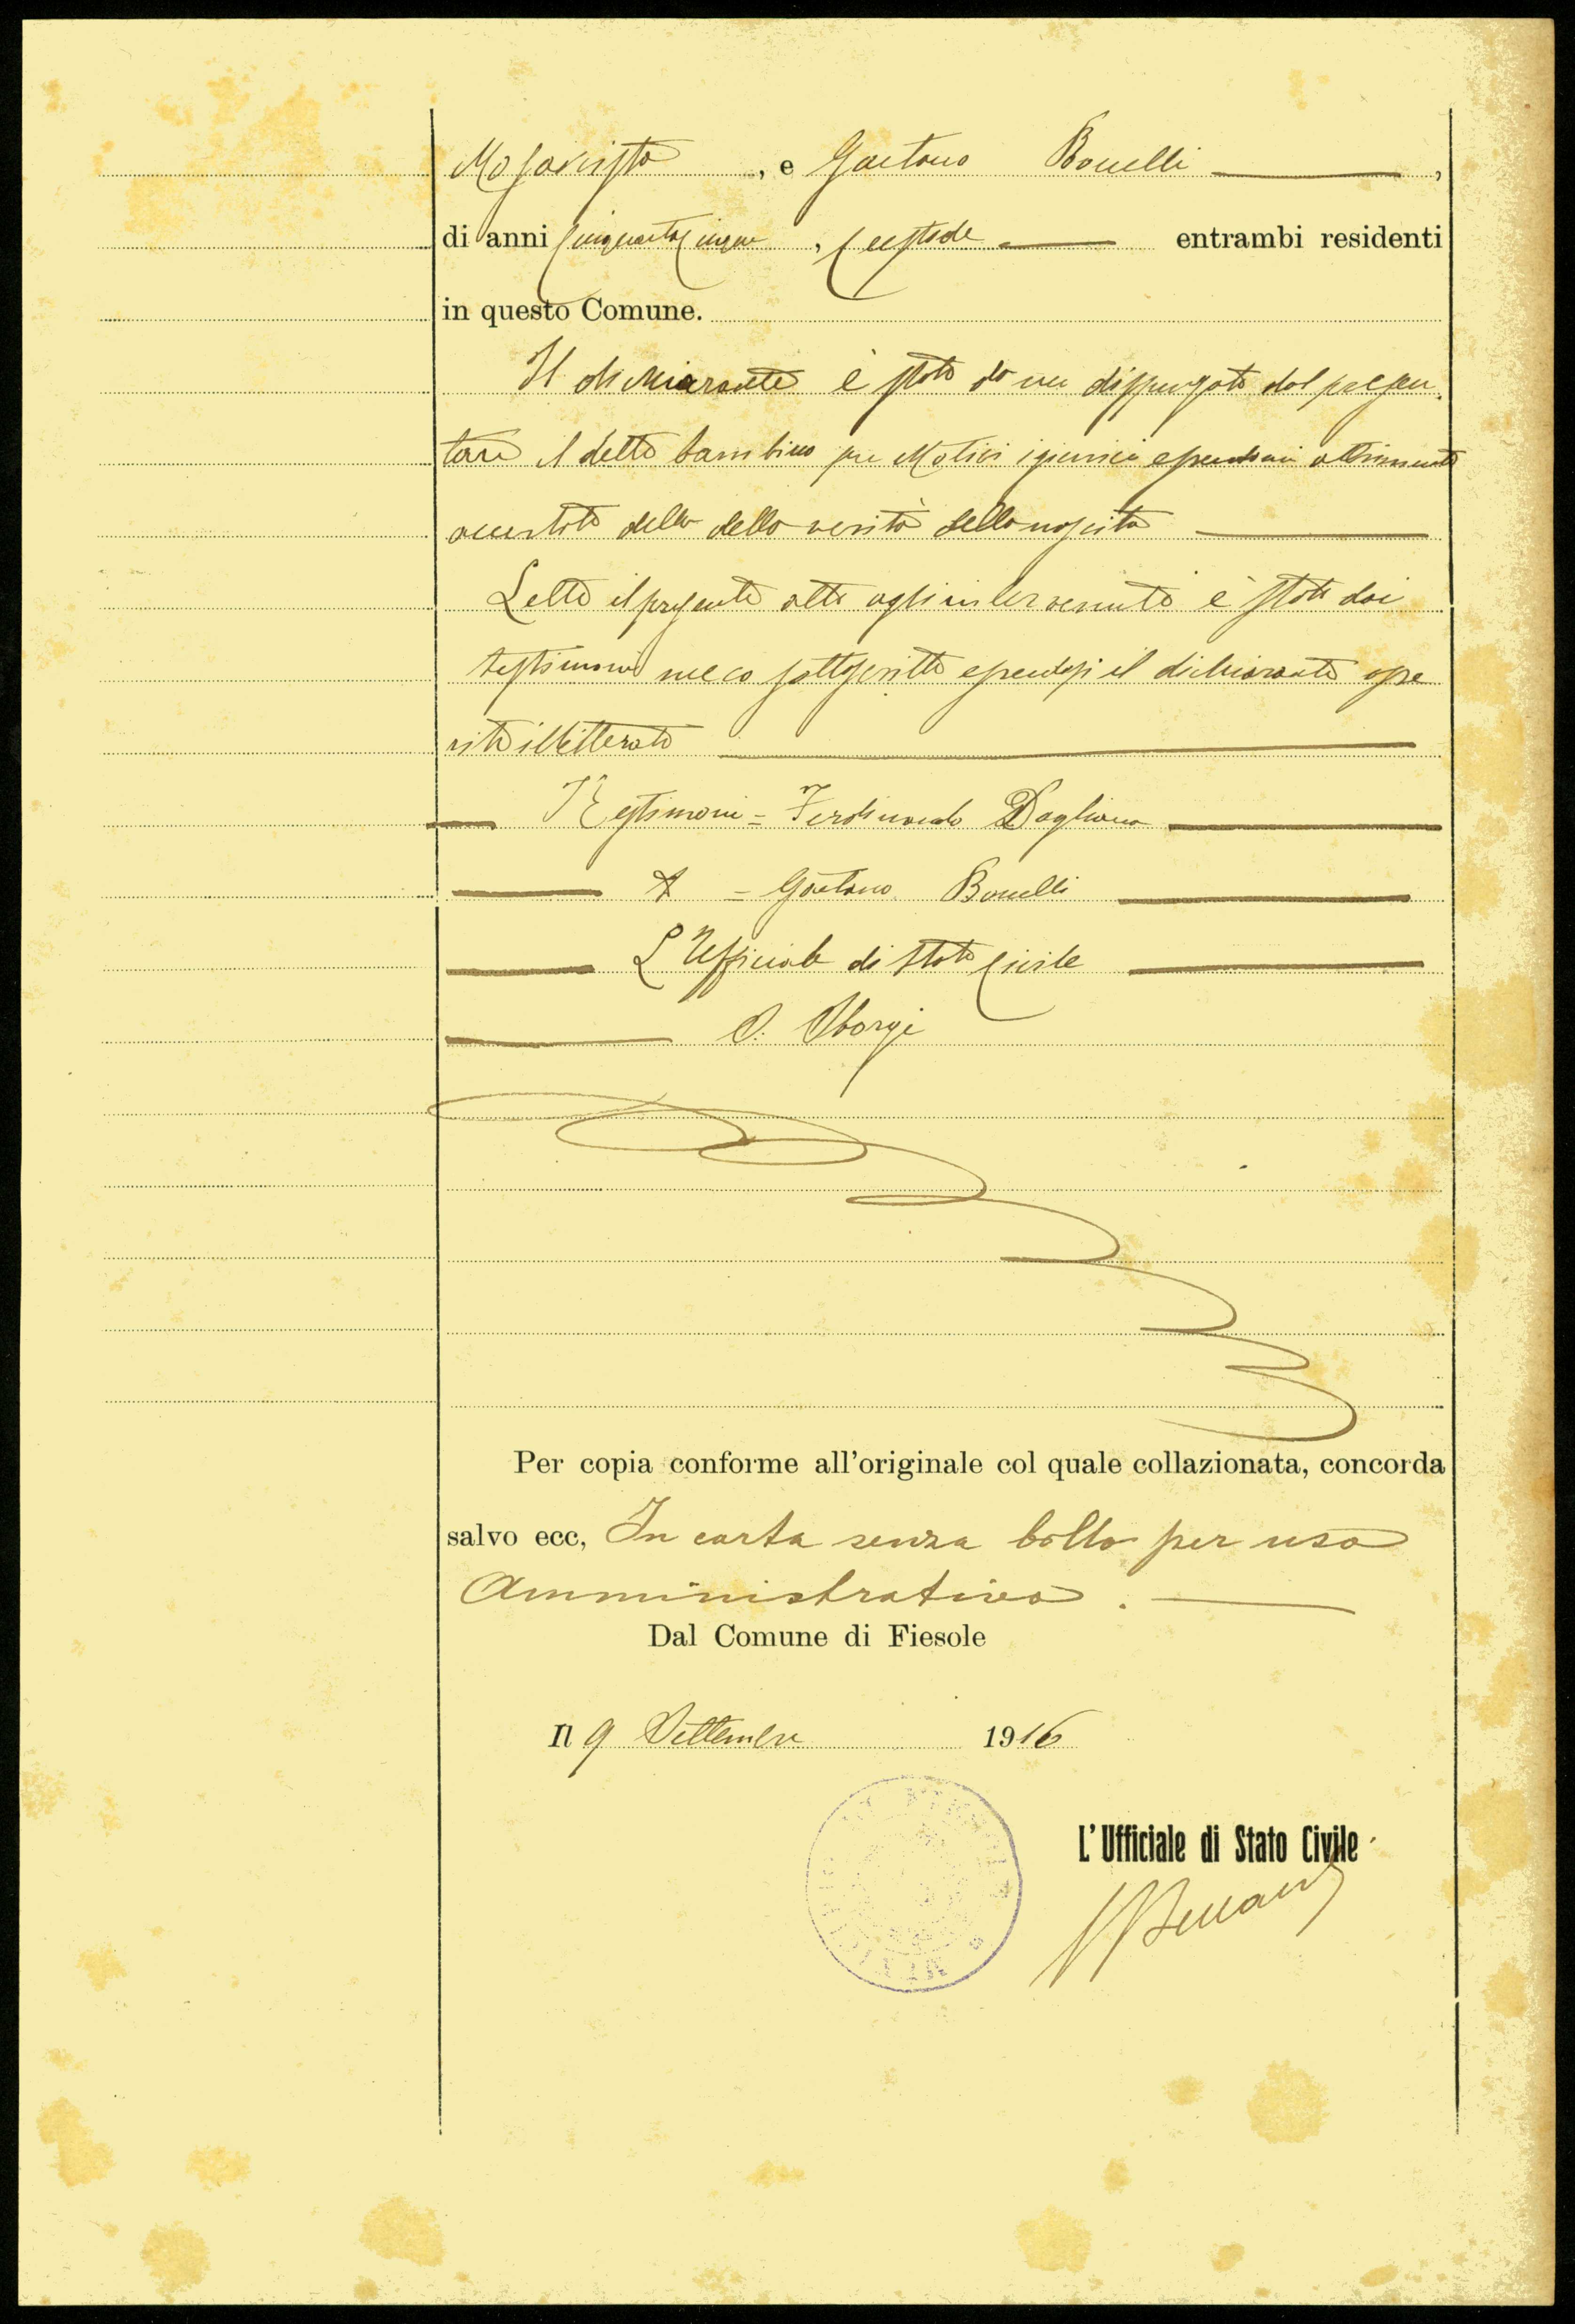 Mosaicista, e Gaetano Bonelli,
di anni cinquantacinque, custode entrambi residenti
in questo Comune.
Il dichiarante è stato da me dispensato dal presen
tare il detto bambino per motivi igienici essendomi altrimenti
accertato della della verità della nascita
Letto il presente atto agli intervenuti è stato dai
testimoni meco sottoscritto essendosi il dichiarante asse
rito illetterato
Testimoni = Ferdinando Dagliana
= Gaetano Bonelli
L'Ufficiale di Stato Civile
Per copia conforme all'originale col quale collazionata, concorda
salvo ecc, In carta senza bollo per uso
Amministrativo.
Dal Comune di Fiesole
Il 9 Settembre 1916
L'Ufficiale di Stato Civile